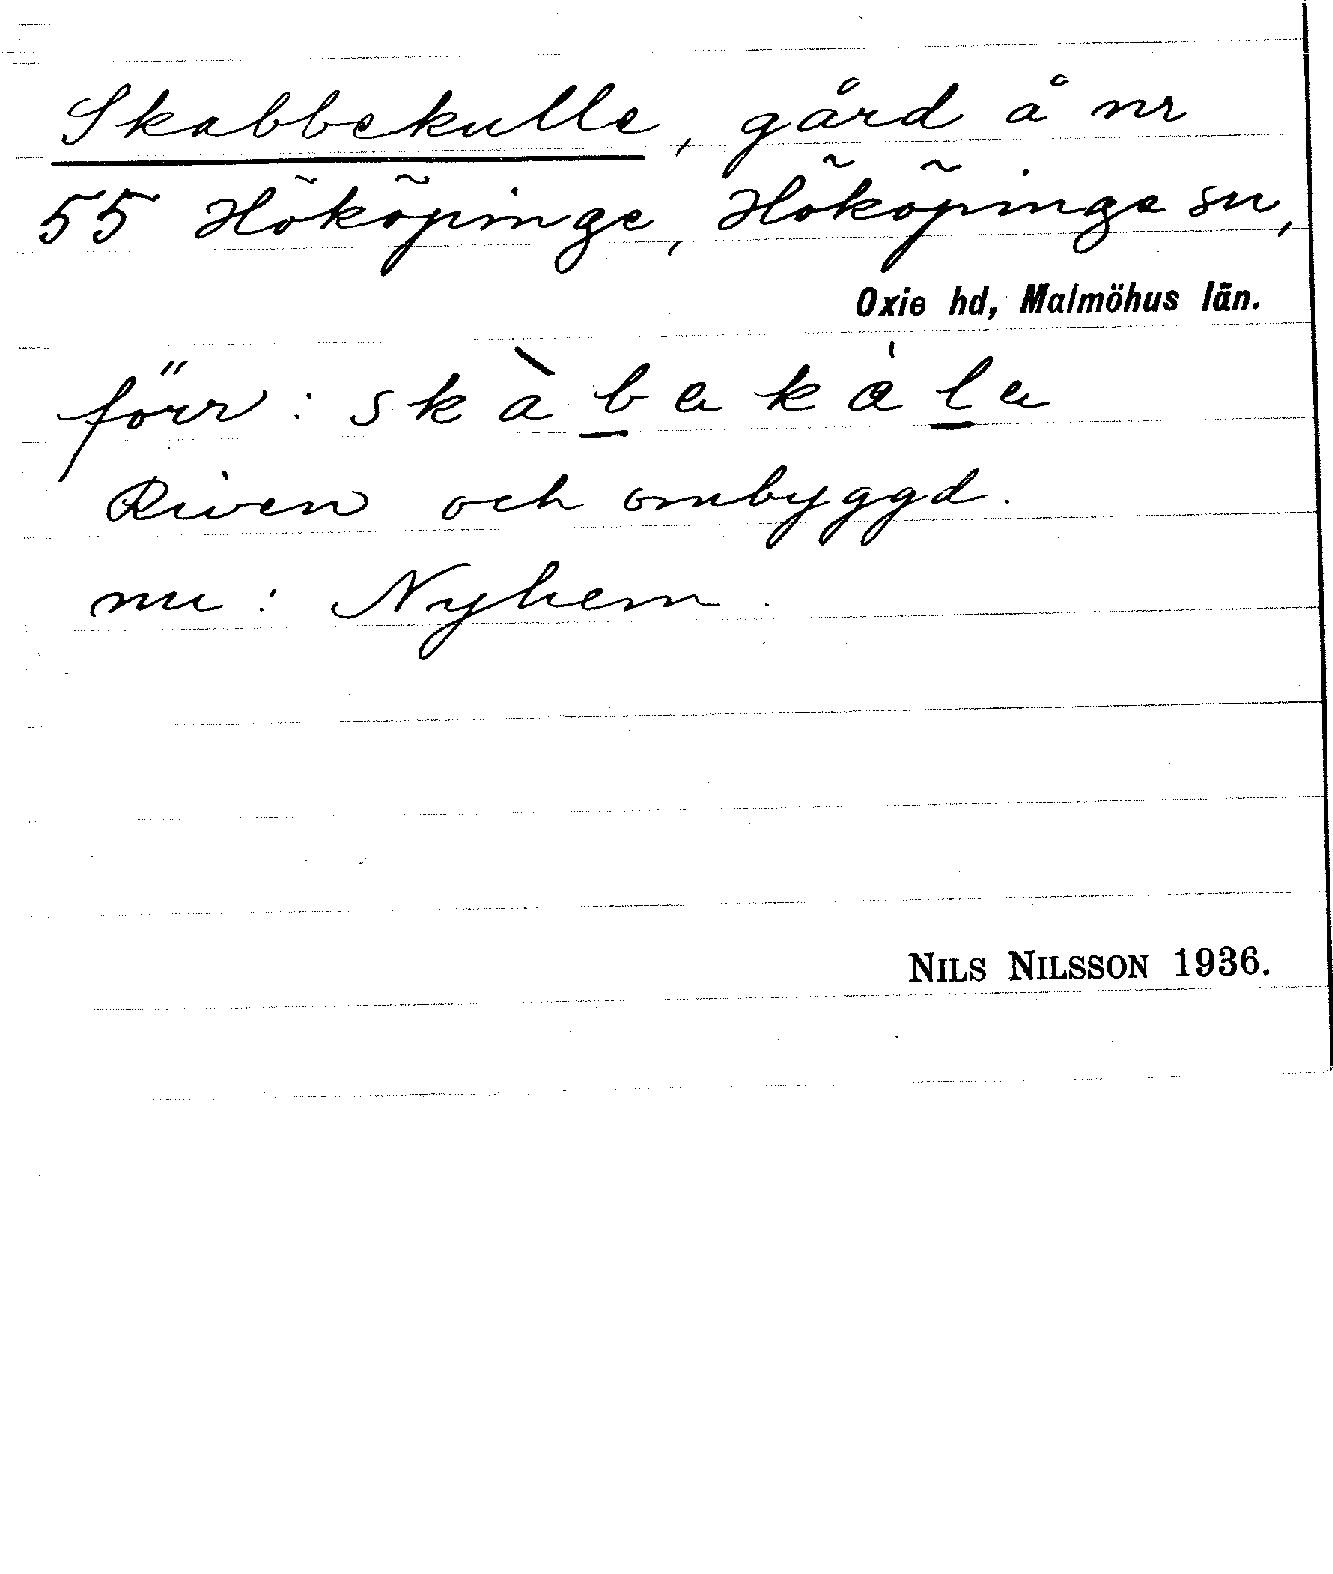 Skabbekulle, gård å nr
55 Hököpinge, Hököpinge sn,
Oxie hd, Malmöhus län.
förr: skàbekàle
Riven och ombyggd.
nu: Nyhem.
NILS NILSSON 1936.